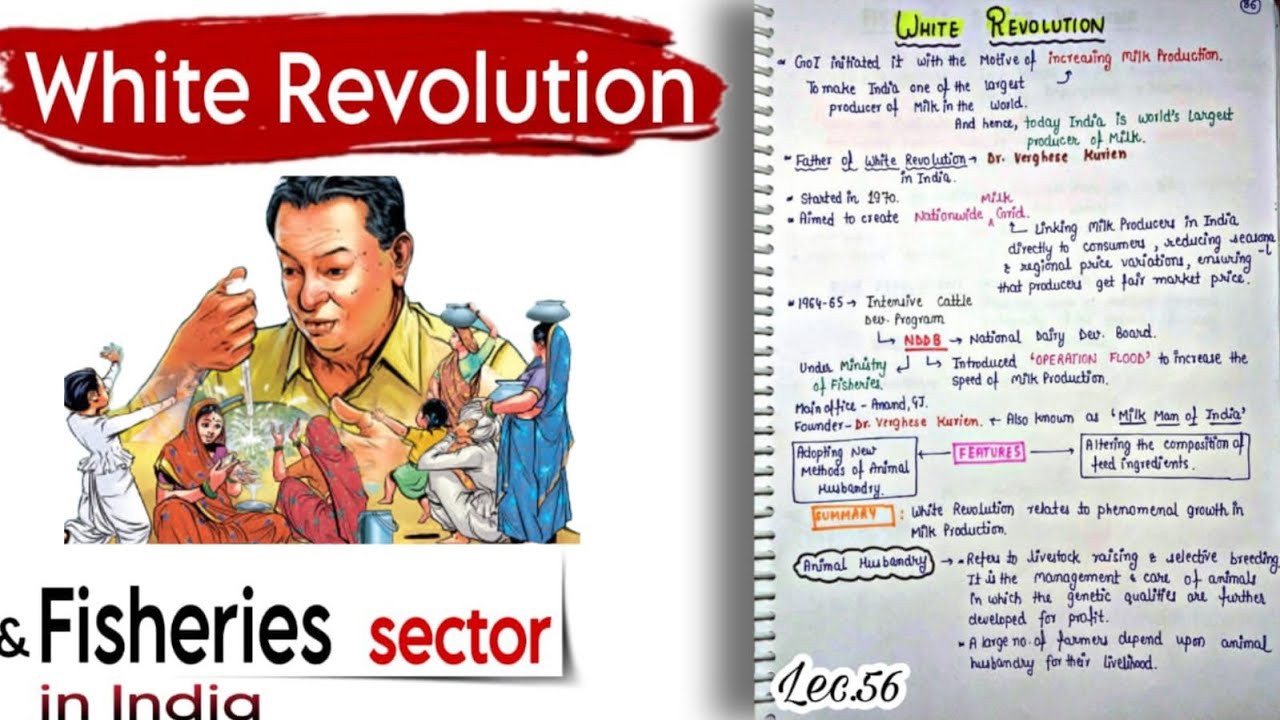 White Revolution
& Fisheries sector
in India
86
WHITE REVOLUTION
GoI initiated it with the Motive of increasing Milk Production.
To make India one of the largest
producer of Milk in the World.
And hence, today India is world's largest
producer of Milk.
Father of White Revolution → Dr. Verghese Kurien
in India.
Started in 1970.
Milk
Aimed to create Nationwide ^ Grid.
Linking Milk Producers in India
directly to consumers, reducing seasona
-l
& regional price variations, ensuring
that producers get fair market price.
1964-65 → Intensive Cattle
Dev. Program
↳ NDDB → National Dairy Dev. Board.
Under Ministry
of Fisheries.
↳ Introduced 'OPERATION FLOOD' to increase the
speed of Milk Production.
Main office - Anand, GJ.
Founder - Dr. Verghese Kurien. ← Also known as 'Milk Man of India'
Adopting New
Methods of Animal
Husbandry.
← FEATURES →
Altering the composition of
feed ingredients.
SUMMARY : White Revolution relates to phenomenal growth in
Milk Production.
Animal Husbandry → Refers to livestock raising & selective breeding.
It is the management & care of animals
in which the genetic qualities are further
developed for profit.
A large no. of farmers depend upon animal
husbandry for their livelihood.
Lec.56